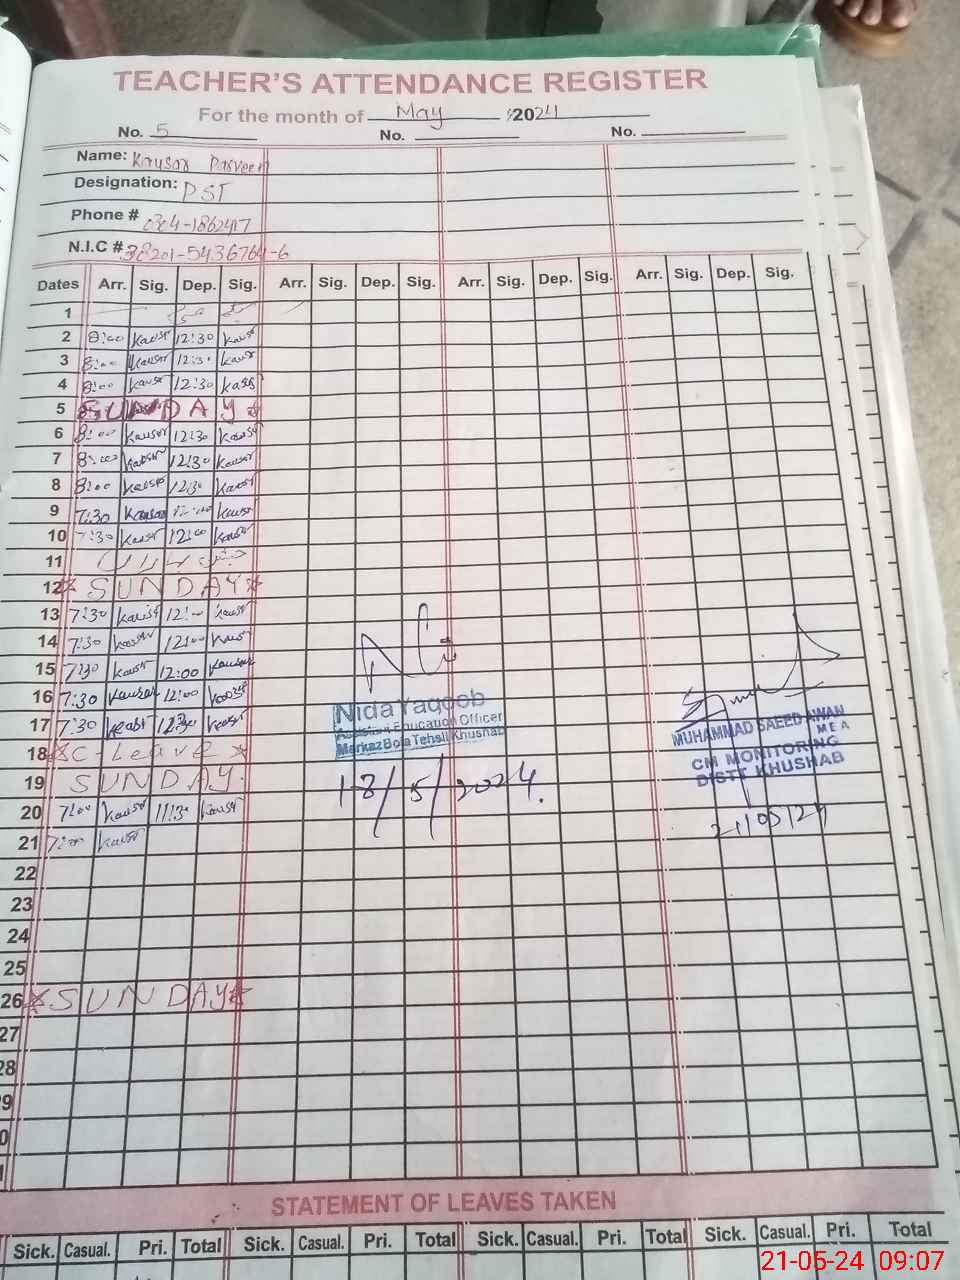 TEACHER'S ATTENDANCE REGISTER
For the month of May 2024
No. 5 No. No.
Name: Kausar Parveen
Designation: PST
Phone #
N.I.C # 38201-5436764-6
Dates Arr. Sig. Dep. Sig. Arr. Sig. Dep. Sig. Arr. Sig. Dep. Sig. Arr. Sig. Dep. Sig.
1
2 8:00 Kausr 12:30 Kausr
3 8:00 Kausar 12:30 Kausr
4 8:00 Kausr 12:30 Kausr
5 SUNDAY
6 8:00 Kausar 12:30 Kausr
7 8:00 Kausar 12:30 Kausr
8 8:00 Kausar 12:30 Kausr
9 7:30 Kausar 12:00 Kausr
10 7:30 Kausr 12:00 Kausr
11
12 * SUNDAY *
13 7:30 Kausr 12:00 Kausr
14 7:30 Kausar 12:00 Kausr
15 7:30 Kausr 12:00 Kausar
16 7:30 Kausar 12:00 Kausar
17 7:30 Kausr Kausr
18 * C-Leave *
19 SUNDAY
20 7:00 Kausr 11:30 Kausr
21 7:00 Kausr
22
23
24
25
26 * SUNDAY *
27
28
Nida Yaqoob
Assistant Education Officer
Markaz Bola Tehsil Khushab
18/5/2024.
MUHAMMAD SAEED AWAN
MEA
CM MONITORING
DISTT KHUSHAB
21/05/24
STATEMENT OF LEAVES TAKEN
Sick. Casual. Pri. Total Sick. Casual. Pri. Total Sick. Casual. Pri. Total Sick. Casual. Pri. Total
21-05-24 09:07